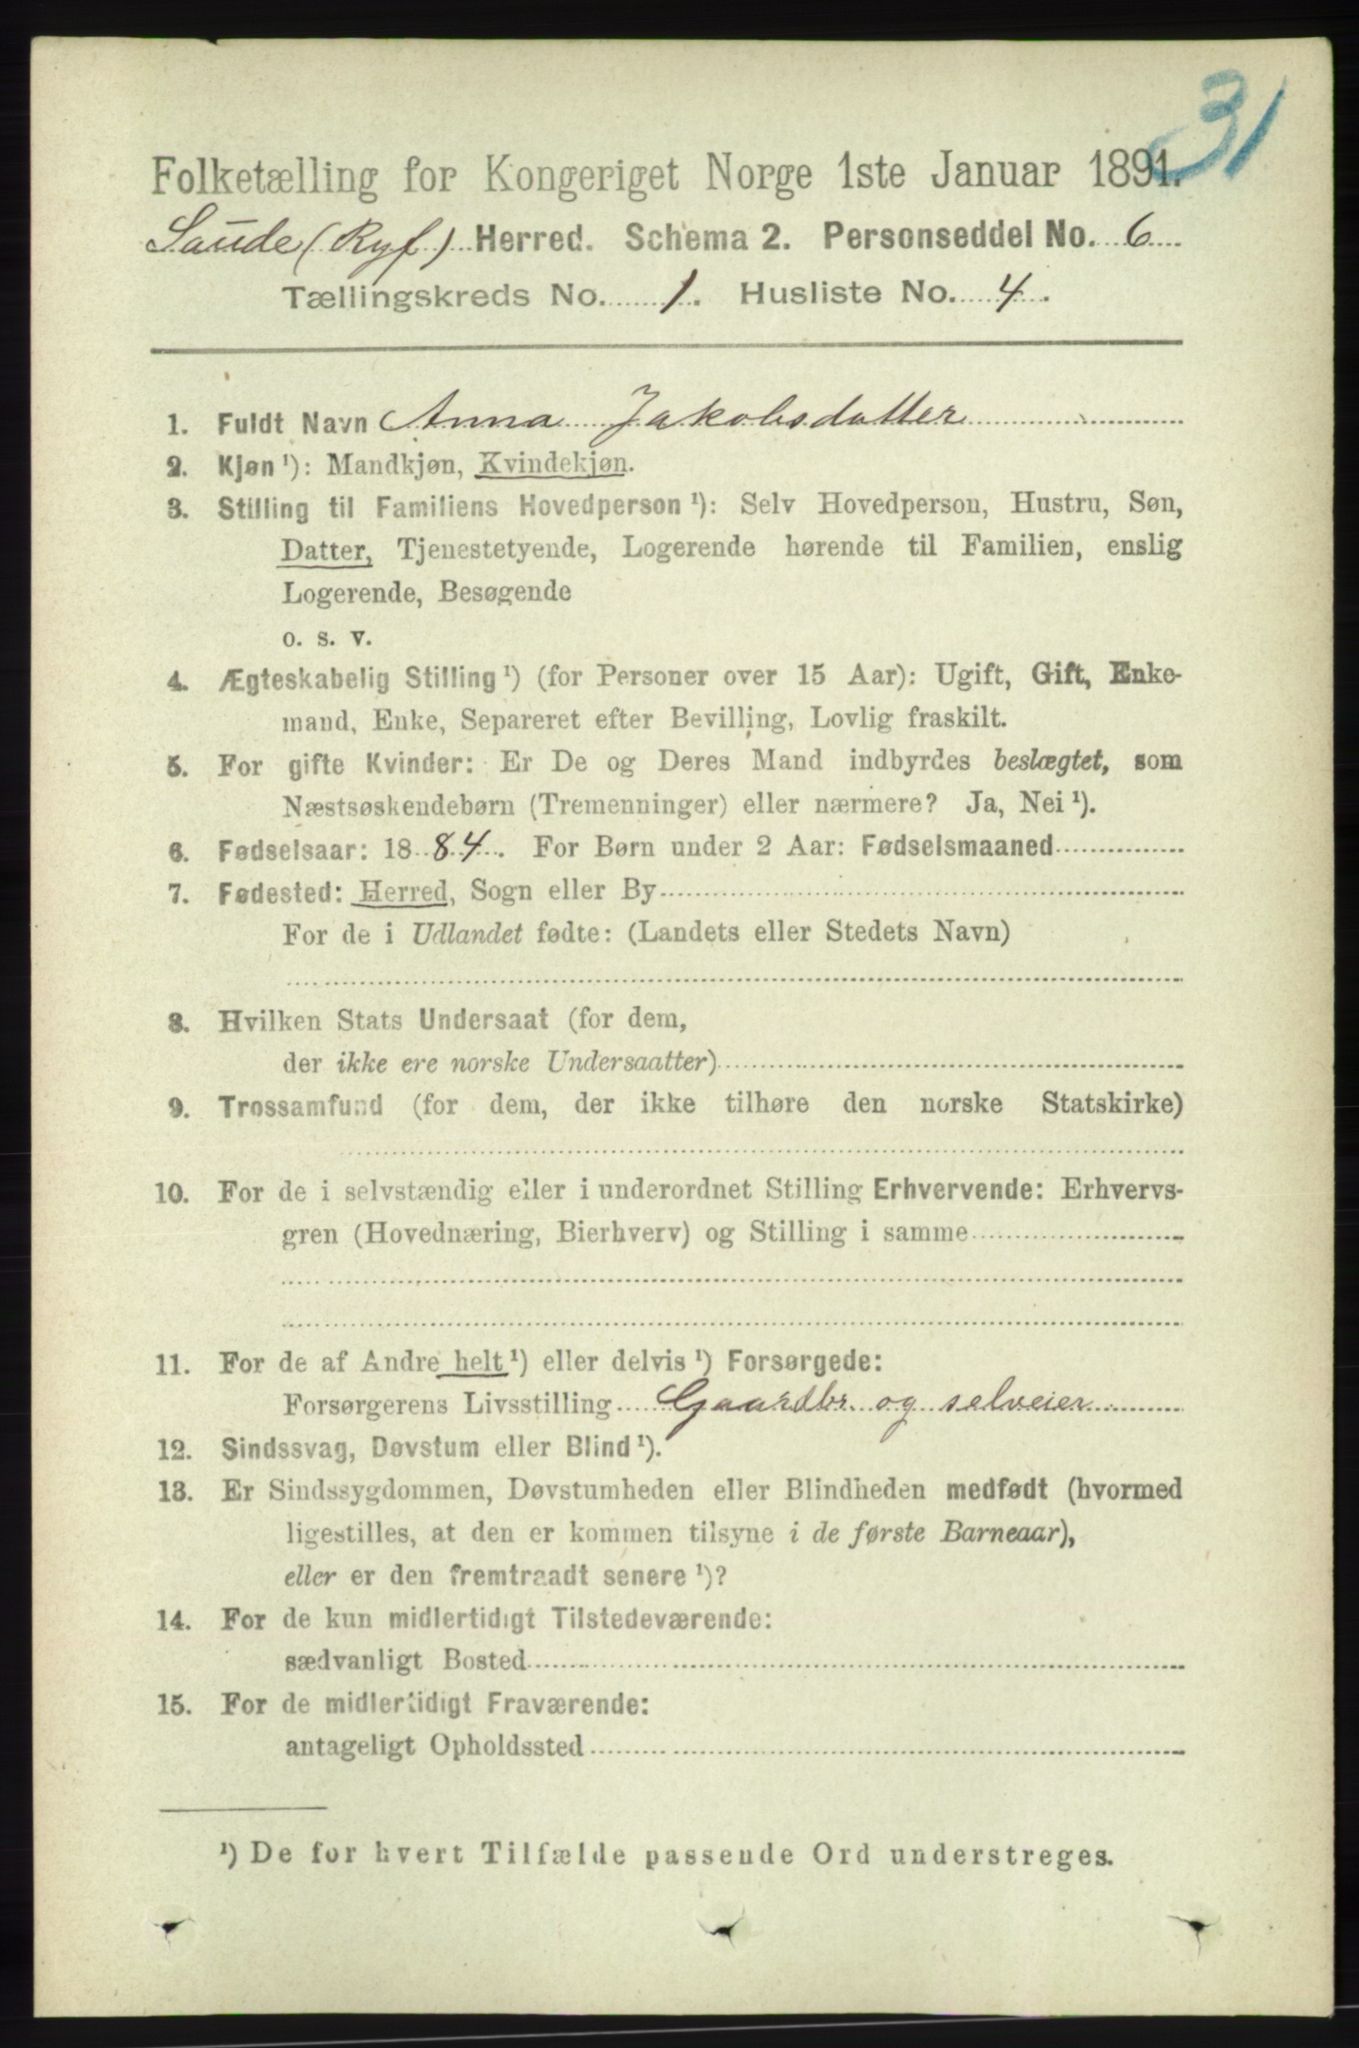 31
Folketælling for Kongeriget Norge 1ste Januar 1891.
Saude (Ryf) Herred. Schema 2. Personseddel No. 6
Tællingskreds No. 1. Husliste No. 4.
1. Fuldt Navn Anna Jakobsdatter
2. Kjøn ¹): Mandkjøn, Kvindekjøn.
3. Stilling til Familiens Hovedperson ¹): Selv Hovedperson, Hustru, Søn,
Datter, Tjenestetyende, Logerende hørende til Familien, enslig
Logerende, Besøgende
o. s. v.
4. Ægteskabelig Stilling ¹) (for Personer over 15 Aar): Ugift, Gift, Enke-
mand, Enke, Separeret efter Bevilling, Lovlig fraskilt.
5. For gifte Kvinder: Er De og Deres Mand indbyrdes beslægtet, som
Næstsøskendebørn (Tremenninger) eller nærmere? Ja, Nei ¹).
6. Fødselsaar: 1884. For Børn under 2 Aar: Fødselsmaaned
7. Fødested: Herred, Sogn eller By
For de i Udlandet fødte: (Landets eller Stedets Navn)
8. Hvilken Stats Undersaat (for dem,
der ikke ere norske Undersaatter)
9. Trossamfund (for dem, der ikke tilhøre den norske Statskirke)
10. For de i selvstændig eller i underordnet Stilling Erhvervende: Erhvervs-
gren (Hovednæring, Bierhverv) og Stilling i samme
11. For de af Andre helt ¹) eller delvis ¹) Forsørgede:
Forsørgerens Livsstilling Gaardbr. og selveier
12. Sindssvag, Døvstum eller Blind ¹).
13. Er Sindssygdommen, Døvstumheden eller Blindheden medfødt (hvormed
ligestilles, at den er kommen tilsyne i de første Barneaar),
eller er den fremtraadt senere ¹)?
14. For de kun midlertidigt Tilstedeværende:
sædvanligt Bosted
15. For de midlertidigt Fraværende:
antageligt Opholdssted
¹) De for hvert Tilfælde passende Ord understreges.